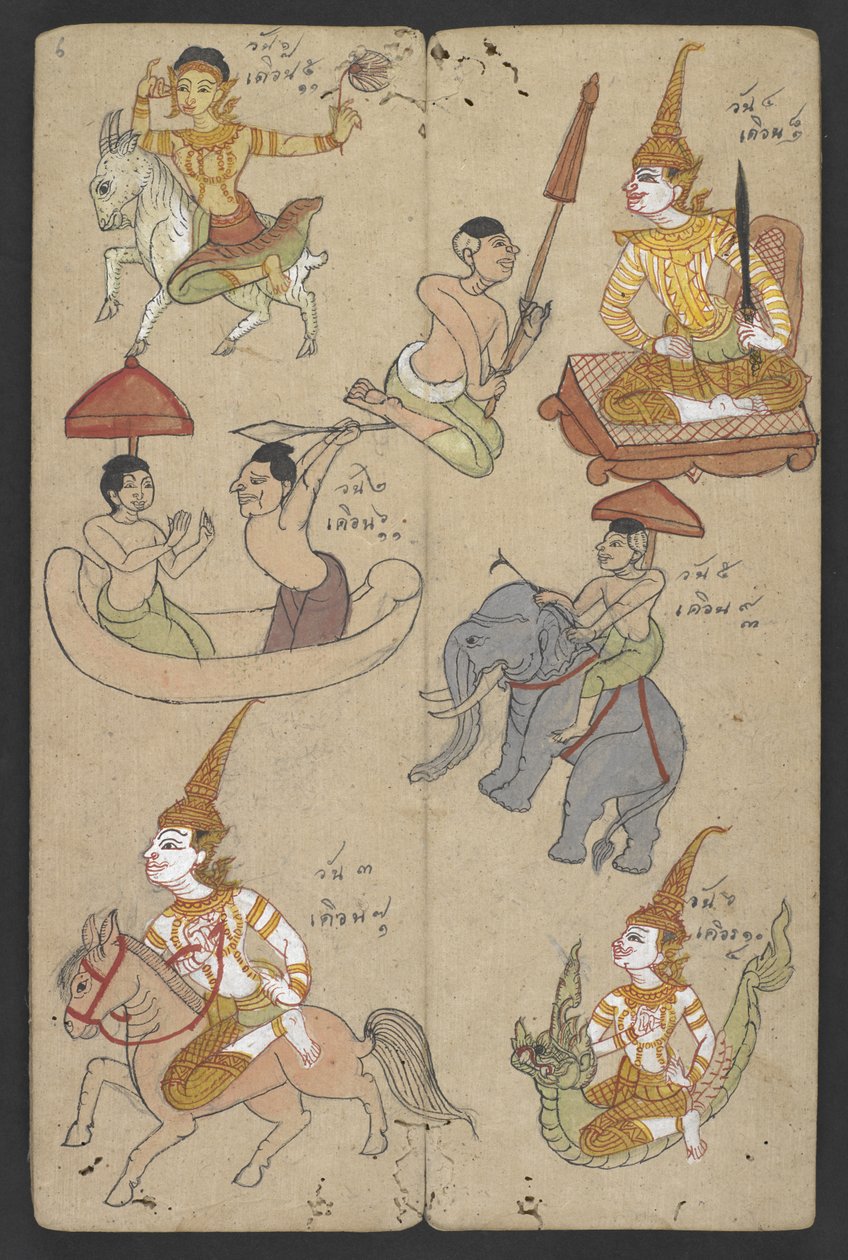 ๖
วัน ๑
เดือน ๕
๑๑
วัน ๒
เดือน ๖
๑๑
วัน ๓
เดือน ๗
๑
วัน ๔
เดือน ๘
๑
วัน ๕
เดือน ๙
๓
วัน ๖
เดือน ๑๐
๔